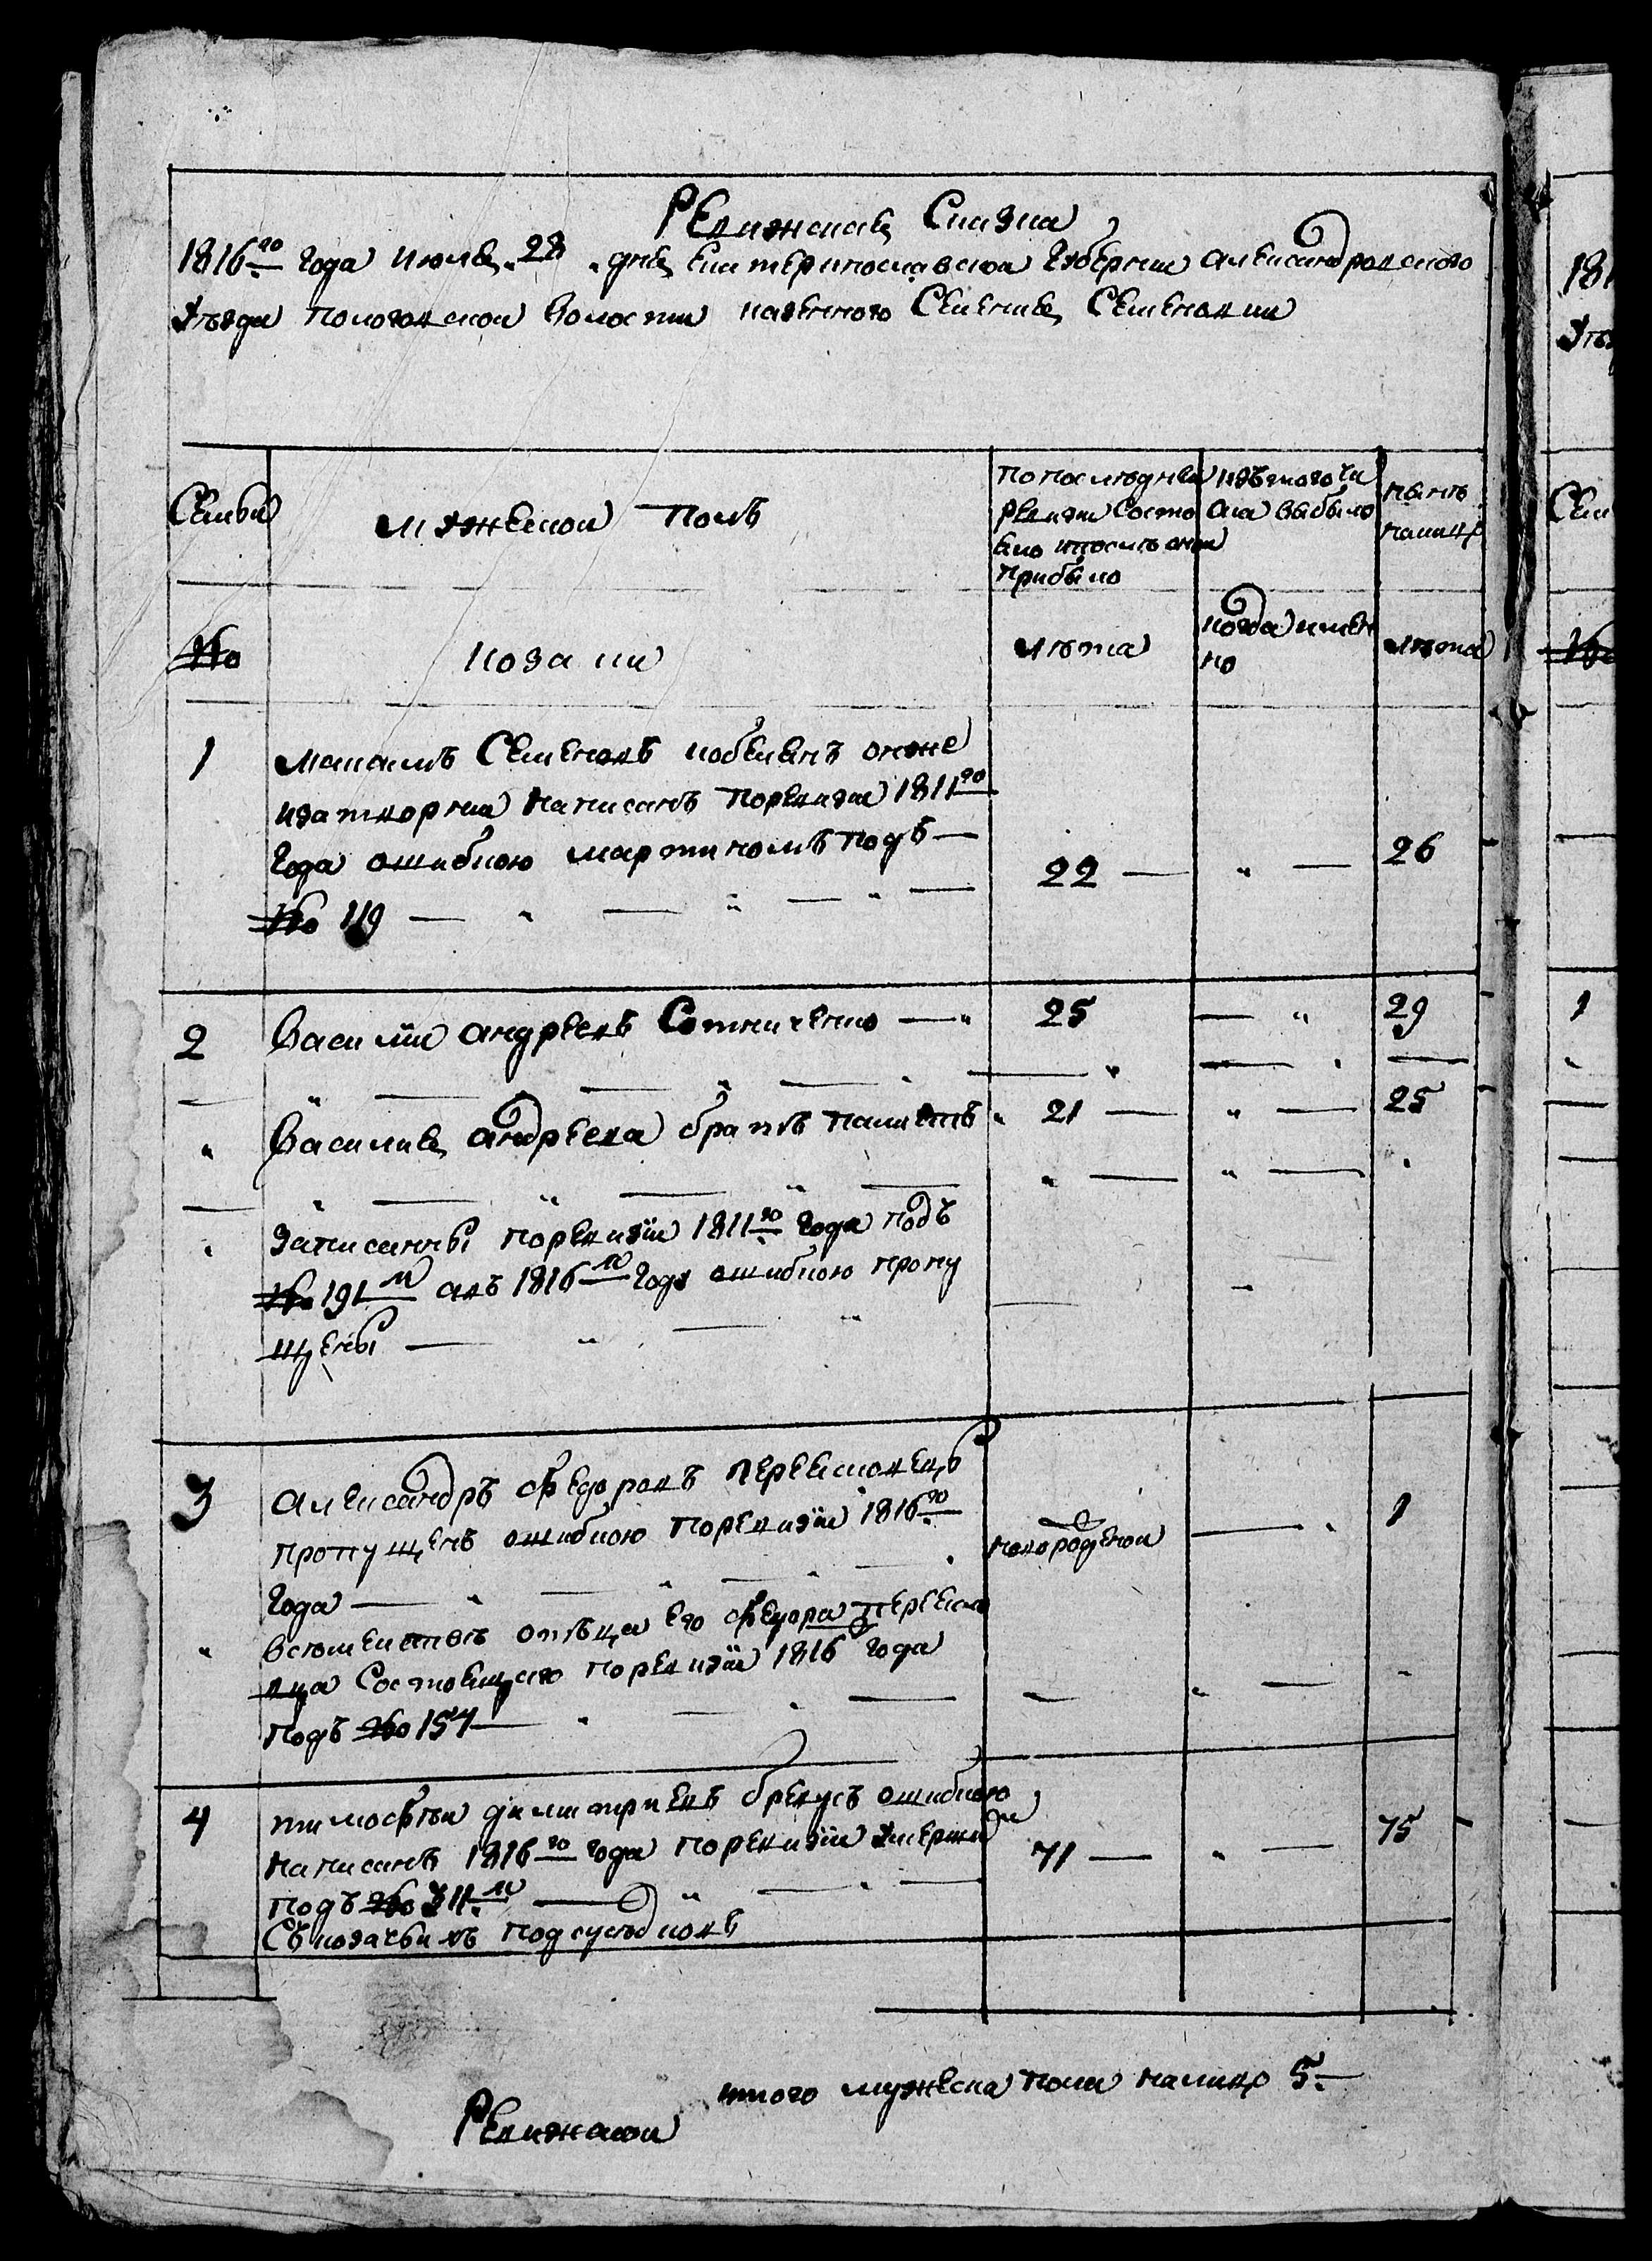 Ревижская Сказка
1816го Года Июля 28 дня Екатеринославской Губернии Александровского
Уезда Пологовской Волости казенного Селения Семеновки
Семьи
Мужеской Полъ
по последней
ревизи состо
яло и после оной
прибыло
изъ того чи
сла выбыло
ныне
налицо
№
козаки
лета
когда имен
но
лета
1
Максимъ Семеновъ Кобелянъ онже
написанъ поревизи 1811го
Года ошибкою Мартиномъ подъ
№ 119
22
26
2
Василий Андреевъ Сотниченко
25
29
Василия Андреева братъ
21
25
записанны поревизіи 1811го Года подъ
№ 191м авъ 1816м Году ошибкою пропу
щены
3
Александръ Федоровъ Перевсковецъ
пропущенъ ошибкою поревизіи 1816го
новорожденой
1
Года
отъца его Федора
вца состоящего поревизіи 1816 Года
подъ № 157
4
Тимофей Димитриевъ Бревусъ ошибкою
написанъ 1816го Года поревизіи умершим
подъ № 311м
71
75
Съ козачьихъ подсуседковъ
итого мужеска пола налицо 5
Ревижской